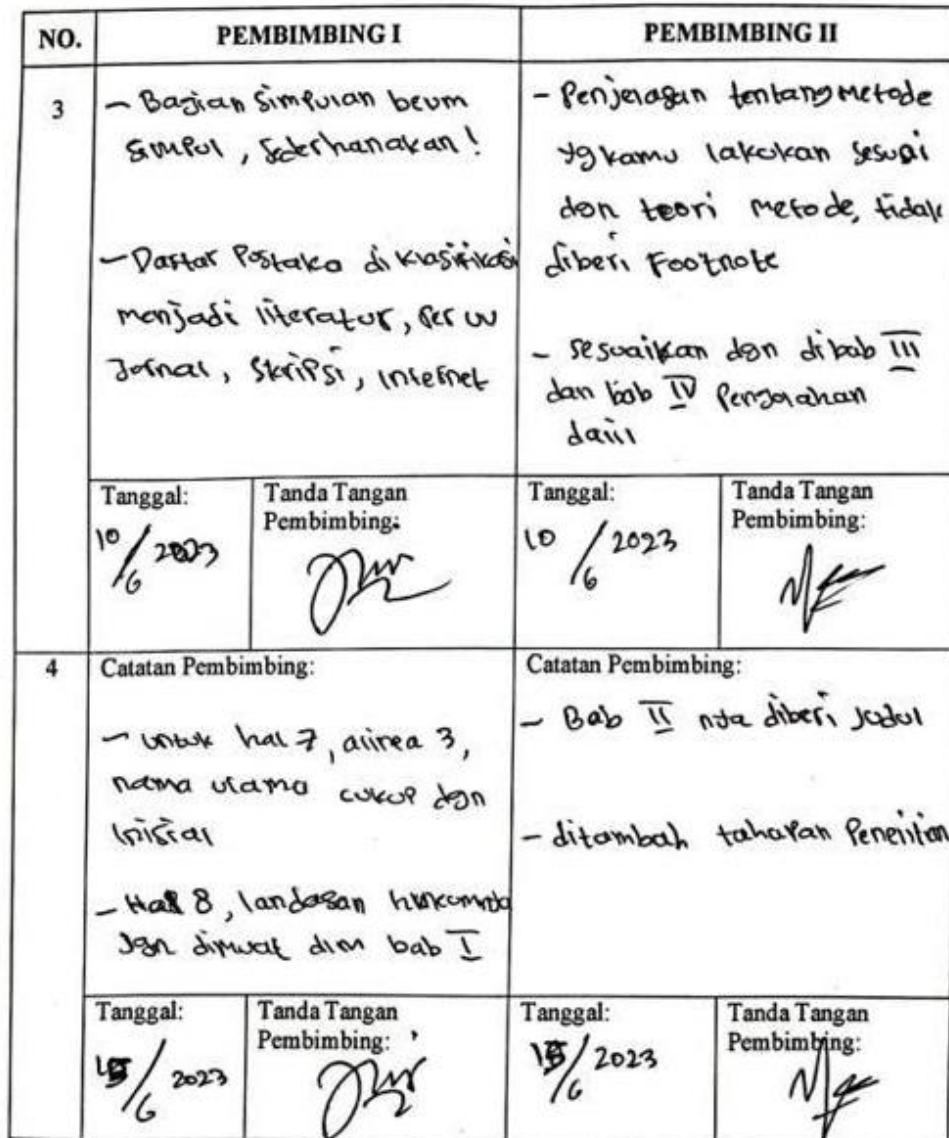 NO.
PEMBIMBING I
PEMBIMBING II
3
- Bagian Simpulan belum
simpul, Sederhanakan!
- Daftar Pustaka di klasifikasi
menjadi literatur, Per UU
Jurnal, Skripsi, internet
- Penjelasan tentang Metode
yg kamu lakukan sesuai
dgn teori metode, tidak
diberi Footnote
- Sesuaikan dgn di bab III
dan bab IV
Tanggal:
10/6 2023
Tanda Tangan
Pembimbing:
Tanggal:
10/6 2023
Tanda Tangan
Pembimbing:
4
Catatan Pembimbing:
- Untuk hal 7, alinea 3,
nama ulama cukup dgn
inisial
- Hal 8, landasan hukumnya
Jgn dimuat dlm bab I
Catatan Pembimbing:
- Bab II nya diberi Judul
- ditambah tahapan Penelitian
Tanggal:
15/6 2023
Tanda Tangan
Pembimbing:
Tanggal:
15/6 2023
Tanda Tangan
Pembimbing: